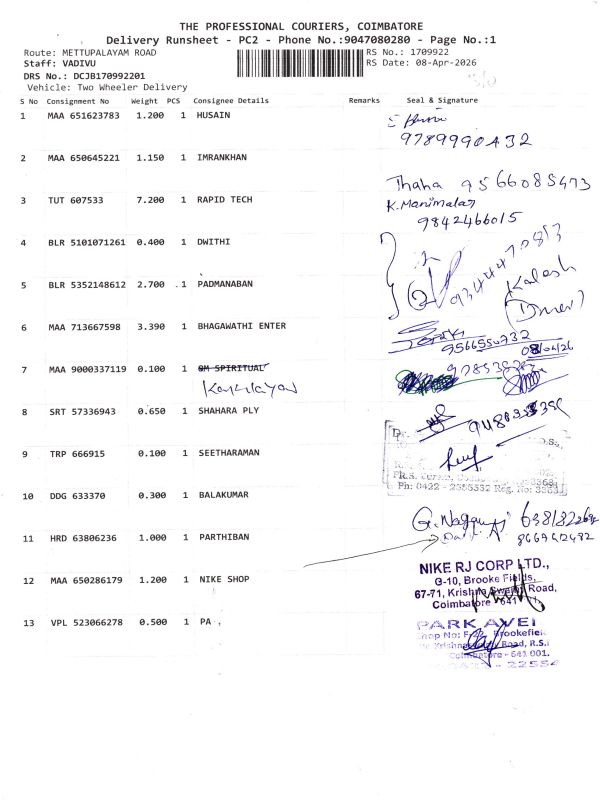 THE PROFESSIONAL COURIERS, COIMBATORE
Delivery Runsheet - PC2 - Phone No.:9047080280 - Page No.:1
Route: METTUPALAYAM ROAD RS No.: 1709922
Staff: VADIVU RS Date: 08-Apr-2026
DRS No.: DCJB170992201
Vehicle: Two Wheeler Delivery
S No Consignment No Weight PCS Consignee Details Remarks Seal & Signature
1 MAA 651623783 1.200 1 HUSAIN
9789990432
2 MAA 650645221 1.150 1 IMRANKHAN
Thaha 9566085473
3 TUT 607533 7.200 1 RAPID TECH
K. Manimalaj
9842466015
4 BLR 5101071261 0.400 1 DWITHI
5 BLR 5352148612 2.700 1 PADMANABAN
Kalesh
6 MAA 713667598 3.390 1 BHAGAWATHI ENTER
9566550732
08/04/26
7 MAA 9000337119 0.100 1 OM SPIRITUAL
8 SRT 57336943 0.650 1 SHAHARA PLY
9 TRP 666915 0.100 1 SEETHARAMAN
Ph: 0422 - Reg. No:
10 DDG 633370 0.300 1 BALAKUMAR
11 HRD 63806236 1.000 1 PARTHIBAN
12 MAA 650286179 1.200 1 NIKE SHOP
NIKE RJ CORP LTD.,
G-10, Brooke Fields,
67-71, Krishna Swamy Road,
Coimbatore - 641
13 VPL 523066278 0.500 1 PA
PARK AVE
Brookefiel
Road, R.S.
Coimbatore - 641 001.
22554